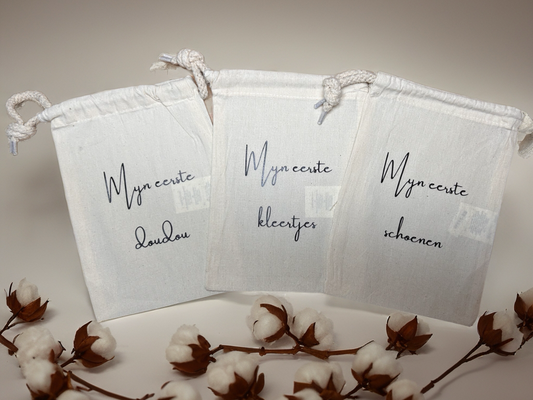 Myn eerste
doudou
Myn eerste
kleertjes
Myn eerste
schoenen